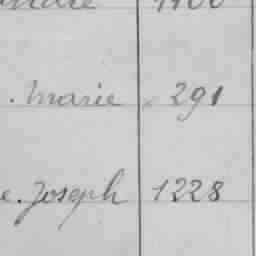 . Marie 291
e. Joseph 1228